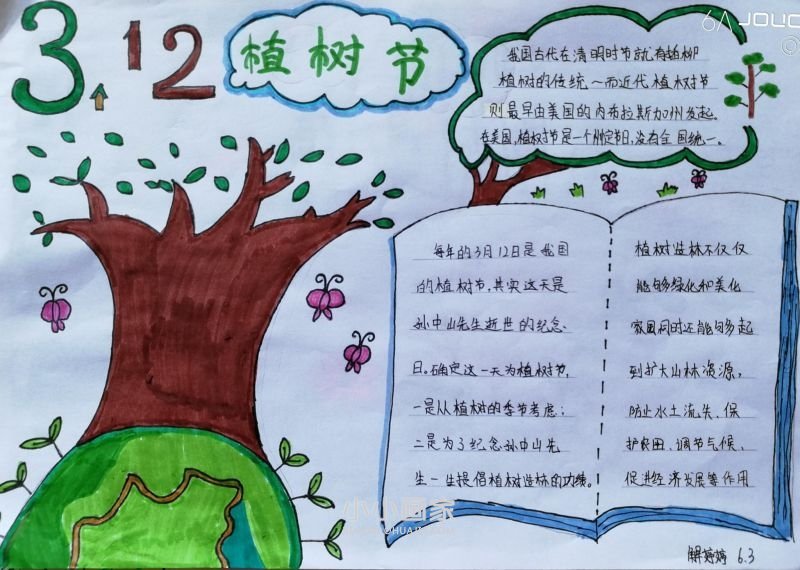 3.12
植树节
6A JOUC
我国古代在清明时节就有植柳
植树的传统，而近代植树节
则最早由美国的内布拉斯加州发起。
在美国，植树节是一个州定节日，没有全国统一。
每年的3月12日是我国
的植树节，其实这天是
孙中山先生逝世的纪念
日。确定这一天为植树节，
一是从植树的季节考虑；
二是为了纪念孙中山先
生一生提倡植树造林的功绩。
植树造林不仅仅
能够绿化和美化
家园同时还能够起
到扩大山林资源，
防止水土流失、保
护良田、调节气候、
促进经济发展等作用
小小画家
解婷婷 6.3